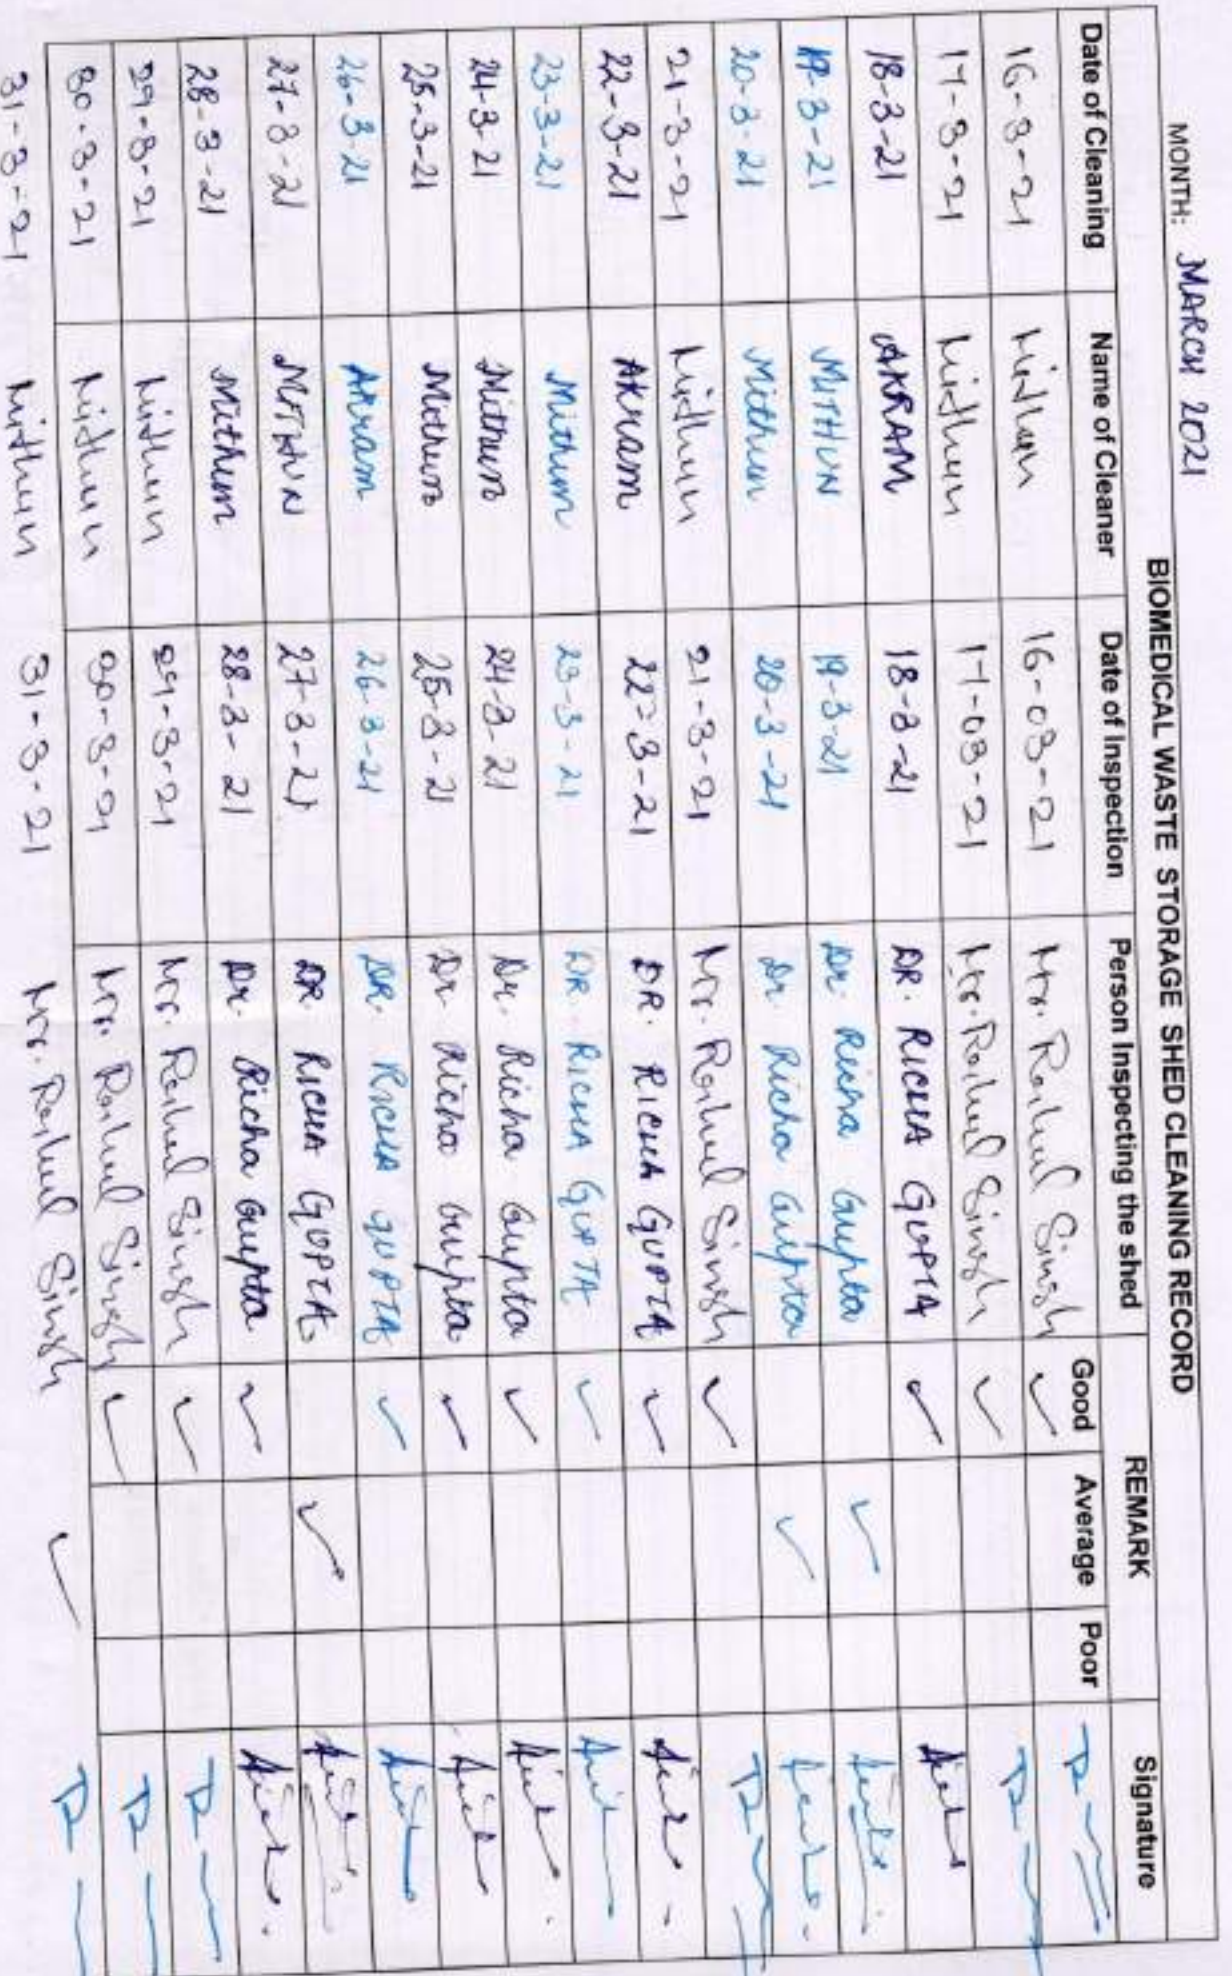 MONTH: MARCH 2021
BIOMEDICAL WASTE STORAGE SHED CLEANING RECORD
Date of Cleaning Name of Cleaner Date of Inspection Person Inspecting the shed REMARK Signature
Good Average Poor
16-3-21 Mithun 16-03-21 Mr. Rahul Singh ✓
17-3-21 Mithun 17-03-21 Mr. Rahul Singh ✓
18-3-21 AKRAM 18-3-21 DR. RICHA GUPTA ✓
19-3-21 MITHUN 19-3-21 Dr. Richa Gupta ✓
20-3-21 Mithun 20-3-21 Dr Richa Gupta ✓
21-3-21 Mithun 21-3-21 Mr. Rahul Singh ✓
22-3-21 Akram 22-3-21 DR. RICHA GUPTA ✓
23-3-21 Mithun 23-3-21 DR. RICHA GUPTA ✓
24-3-21 Mithun 24-3-21 Dr. Richa Gupta ✓
25-3-21 Mithun 25-3-21 Dr Richa Gupta ✓
26-3-21 Akram 26-3-21 DR. RICHA GUPTA ✓
27-3-21 MITHUN 27-3-21 DR. RICHA GUPTA. ✓
28-3-21 Mithun 28-3-21 Dr. Richa Gupta ✓
29-3-21 Mithun 29-3-21 Mr. Rahul Singh ✓
30-3-21 Mithun 30-3-21 Mr. Rahul Singh ✓
31-3-21 Mithun 31-3-21 Mr. Rahul Singh ✓